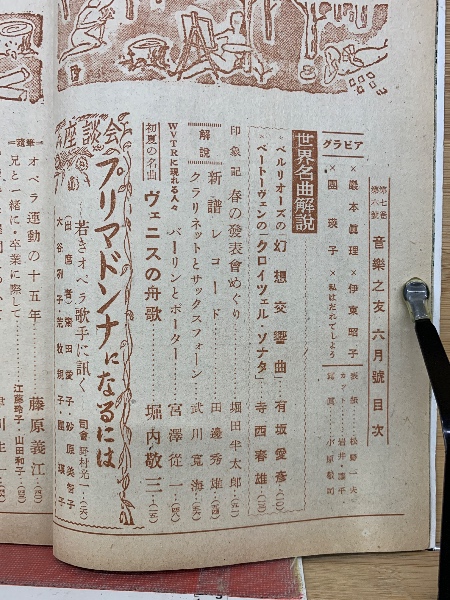 第七巻
第六號
音樂之友 六月號 目次
グラビア
×巖本眞理×伊東昭子
×園瑛子×私はだれでしょう
世界名曲解説
ベルリオーズの幻想交響曲…有坂愛彦
ベートーヴェンの「クロイツェル・ソナタ」…寺西春雄
印象記 春の發表會めぐり……堀田半太郎
解説
新譜レコード……田邊秀雄
クラリネットとサックスフォーン……武川寬海
WVTRに現れる人々 バーリンとポーター……宮澤從一
初夏の名曲 ヴェニスの舟歌……堀内敬三
座談会
プリマドンナになるには
―若きオペラ歌手に訊く
司會 野村光一
オペラ運動の十五年……藤原義江
兄と一緒に・卒業に際して……江藤玲子・山田和子